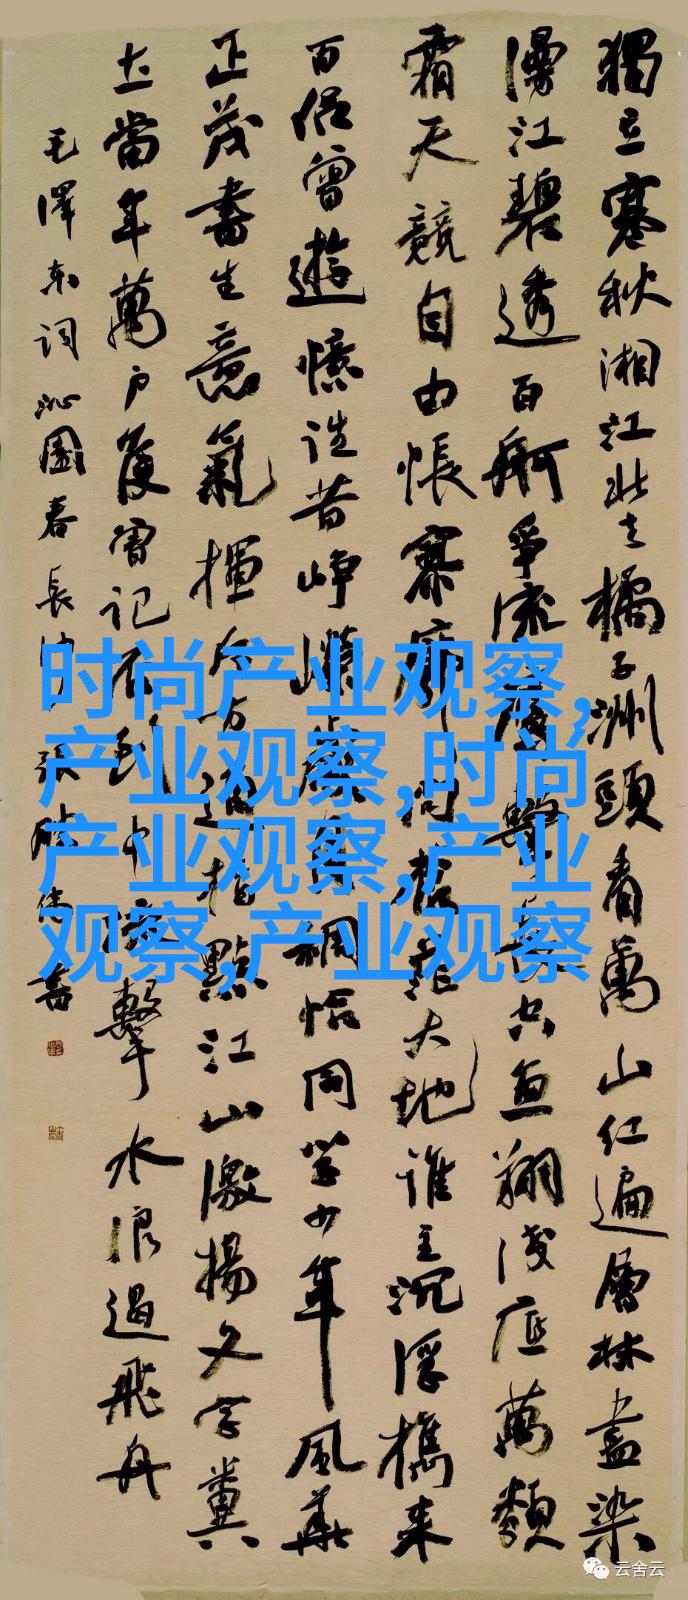 獨立寒秋湘江北去橘子洲頭看萬山红遍層林盡染
漫江碧透百舸爭流鷹擊長空魚翔淺底萬類
霜天競自由悵寥廓問蒼茫大地誰主沉浮攜來
百侶曾遊憶往昔崢嶸歲月稠恰同學少年風華
正茂書生意氣揮斥方遒指點江山激揚文字糞
土當年萬户侯曾記否到中流擊水浪遏飛舟
毛澤东詞沁園春長沙張偉書
时尚产业观察,
产业观察,时尚
产业观察,产业
观察,产业观察
云舍云